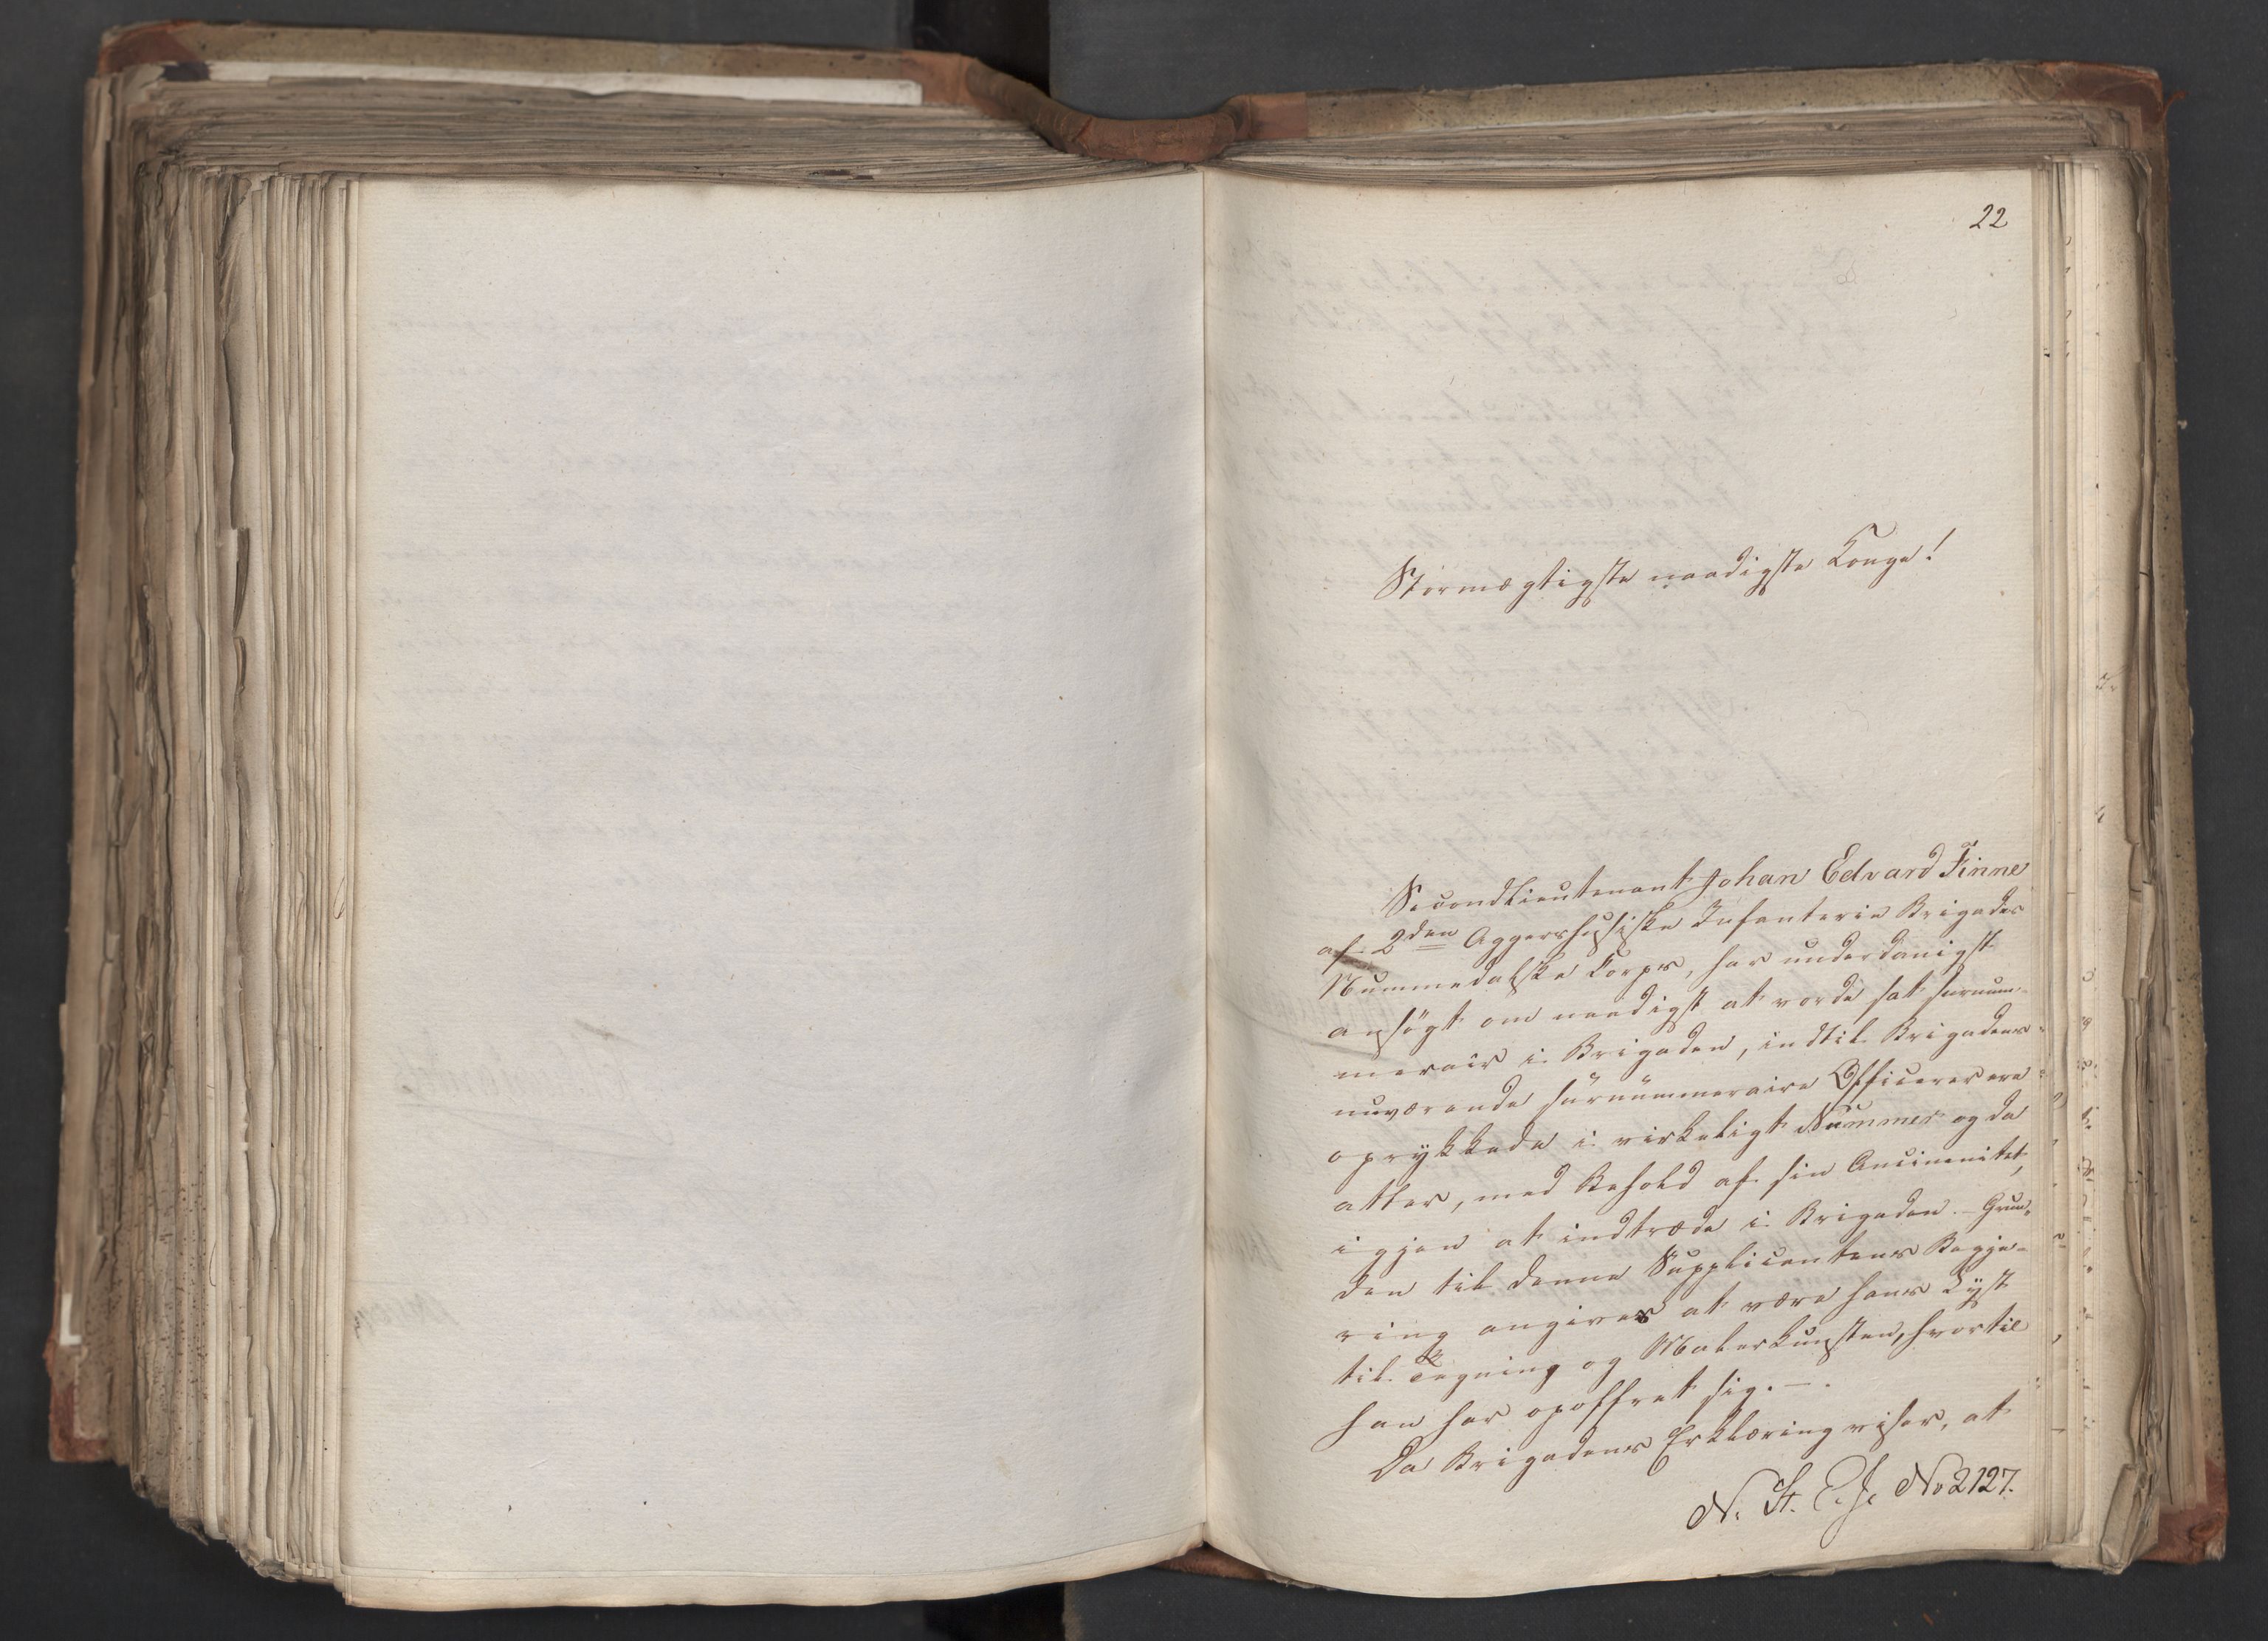 22
Stormægtigste naadigste Konge!
Secondlieutenant Johan Edvard Finne
af 2den Aggershusiske Infanterie Brigades
Nummedalske Corps, har underdanigst
ansøgt om naadigst at vorde sat surnum-
merair i Brigaden, indtil Brigadens
nuværende surnummeraire Officerer ere
oprykkede i virkeligt Nummer og da
atter, med Behold af sin Anciennitet,
igjen at indtræde i Brigaden. – Grun-
den til denne Supplicantens Begje-
ring angives at være hans Lyst
til Tegning og Malerkunsten, hvortil
han har opoffret sig. –
Da Brigadens Erklæring viser, at
N. St. E. J. No 2127.